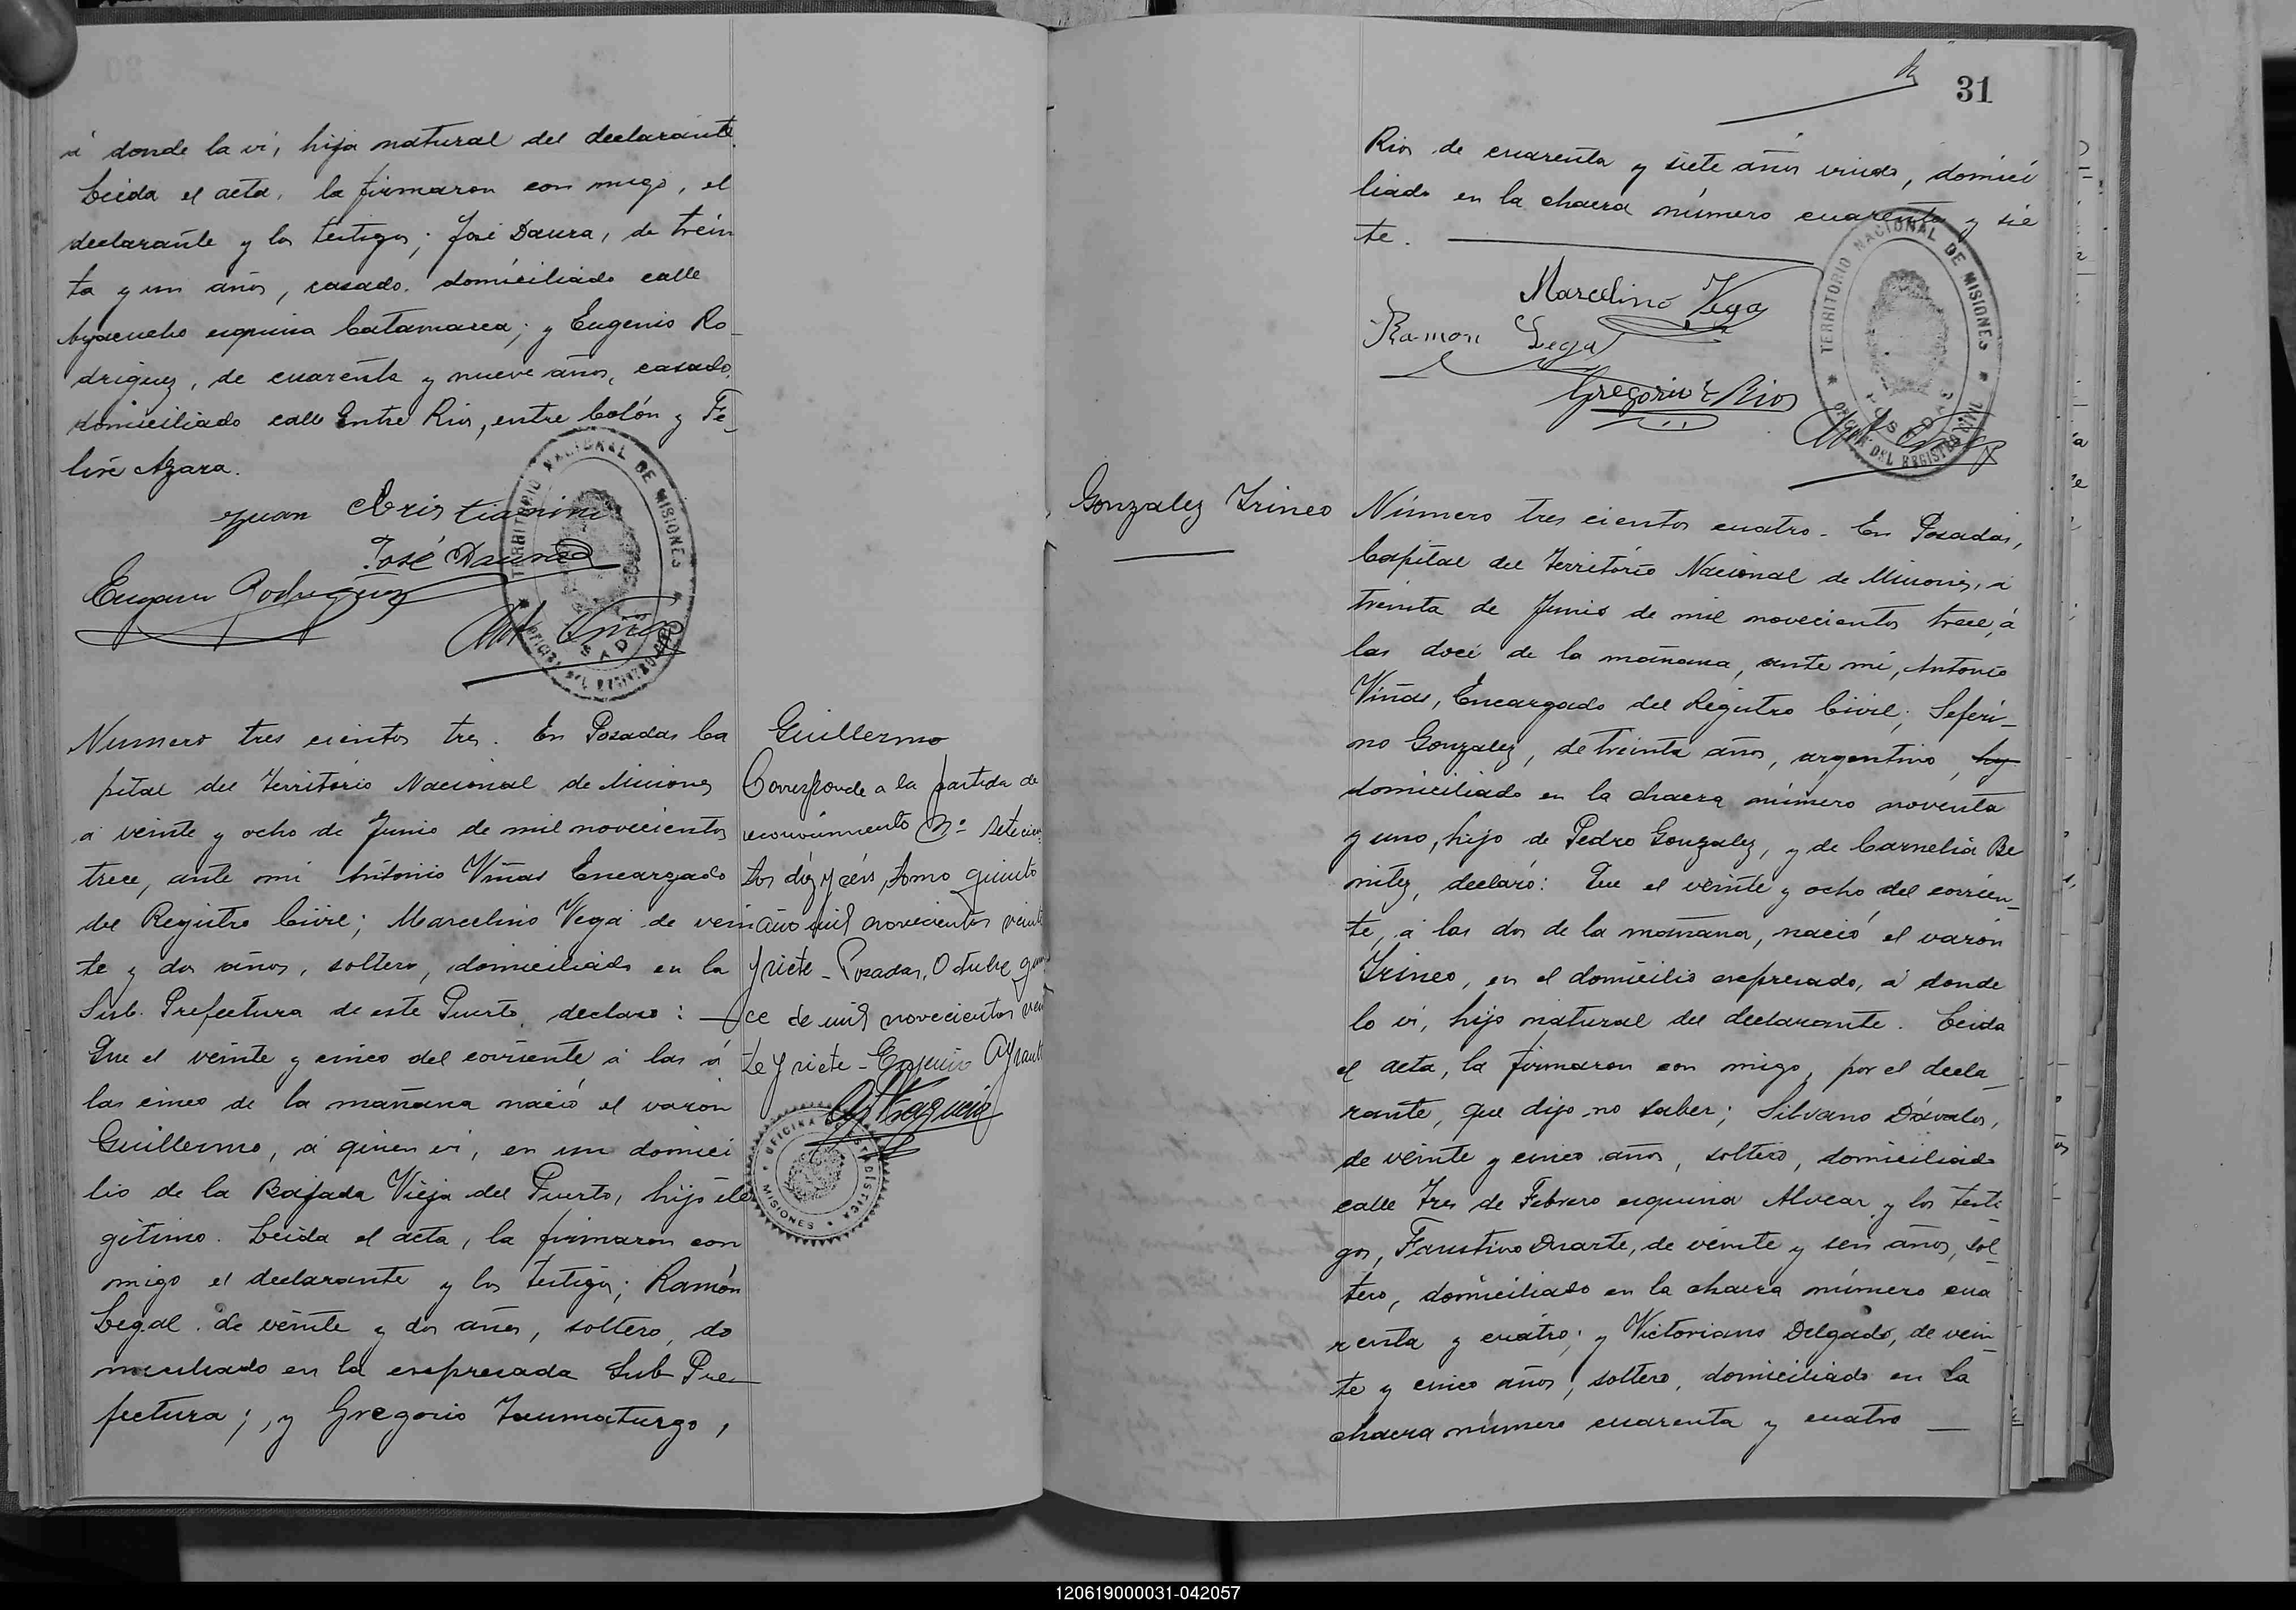 á donde la vi, hija natural del declarante.
Leida el acta, la firmaron con migo, el
declarante y los testigos; José Daura, de trein
ta y un años, casado, domiciliado calle
Ayacucho esquina Catamarca; y Eugenio Ro-
driguez, de cuarenta y nueve años, casado,
domiciliado calle Entre Rios, entre Colón y Fe-
lix Azara.
Juan Cristianini
José Daura
Eugenio Rodriguez
TERRITORIO NACIONAL DE MISIONES
OFICINA DEL REGISTRO CIVIL
POSADAS
Numero tres cientos tres. En Posadas Ca
pital del Territorio Nacional de Misiones
á veinte y ocho de Junio de mil novecientos
trece, ante mi Antonio Viñas Encargado
del Registro Civil; Marcelino Vega de vein
te y dos años, soltero, domiciliado en la
Sub. Prefectura de este Puerto, declaro:
Que el veinte y cinco del corriente á las á
las cinco de la mañana nació el varon
Guillermo, á quien vi, en un domici
lio de la Bajada Vieja del Puerto, hijo ile
gitimo. Leida el acta, la firmaron con
migo el declarante y los testigos; Ramón
Legal de veinte y dos años, soltero, do
miciliado en la expresada Sub Pre-
fectura; y Gregorio Taumaturgo,
Guillermo
Corresponde a la partida de
reconocimiento Nº setecien
tos diez y seis, tomo quinto
año mil novecientos veinte
y siete - Posadas, Octubre quin
ce de mil novecientos vein
te y siete -
OFICINA DE ESTADISTICA
MISIONES
31
Rios de cuarenta y siete años viudo, domici
liado en la chacra número cuarenta y sie
te.
Marcelino Vega
Ramon Legal
Gregorio T Rios
TERRITORIO NACIONAL DE MISIONES
OFICINA DEL REGISTRO CIVIL
POSADAS
Gonzalez Irineo
Número tres cientos cuatro. En Posadas,
Capital del Territorio Nacional de Misiones, á
treinta de Junio de mil novecientos trece, á
las doce de la mañana, ante mi, Antonio
Viñas, Encargado del Registro Civil; Seferi-
no Gonzalez, de treinta años, argentino, hij
domiciliado en la chacra número noventa
y uno, hijo de Pedro Gonzalez, y de Carnelia Be
nitez, declaró: Que el veinte y ocho del corrien-
te, á las dos de la mañana, nació el varón
Irineo, en el domicilio expresado, á donde
lo vi, hijo natural del declarante. Leida
el acta, la firmaron con migo, por el decla-
rante, que dijo no saber; Silvano Dávalos,
de veinte y cinco años, soltero, domiciliado
calle Tres de Febrero esquina Alvear y los testi
gos, Faustino Duarte, de veinte y seis años, sol-
tero, domiciliado en la chacra número cua
renta y cuatro; y Victoriano Delgado, de vein-
te y cinco años, soltero, domiciliado en la
chacra número cuarenta y cuatro
120619000031-042057